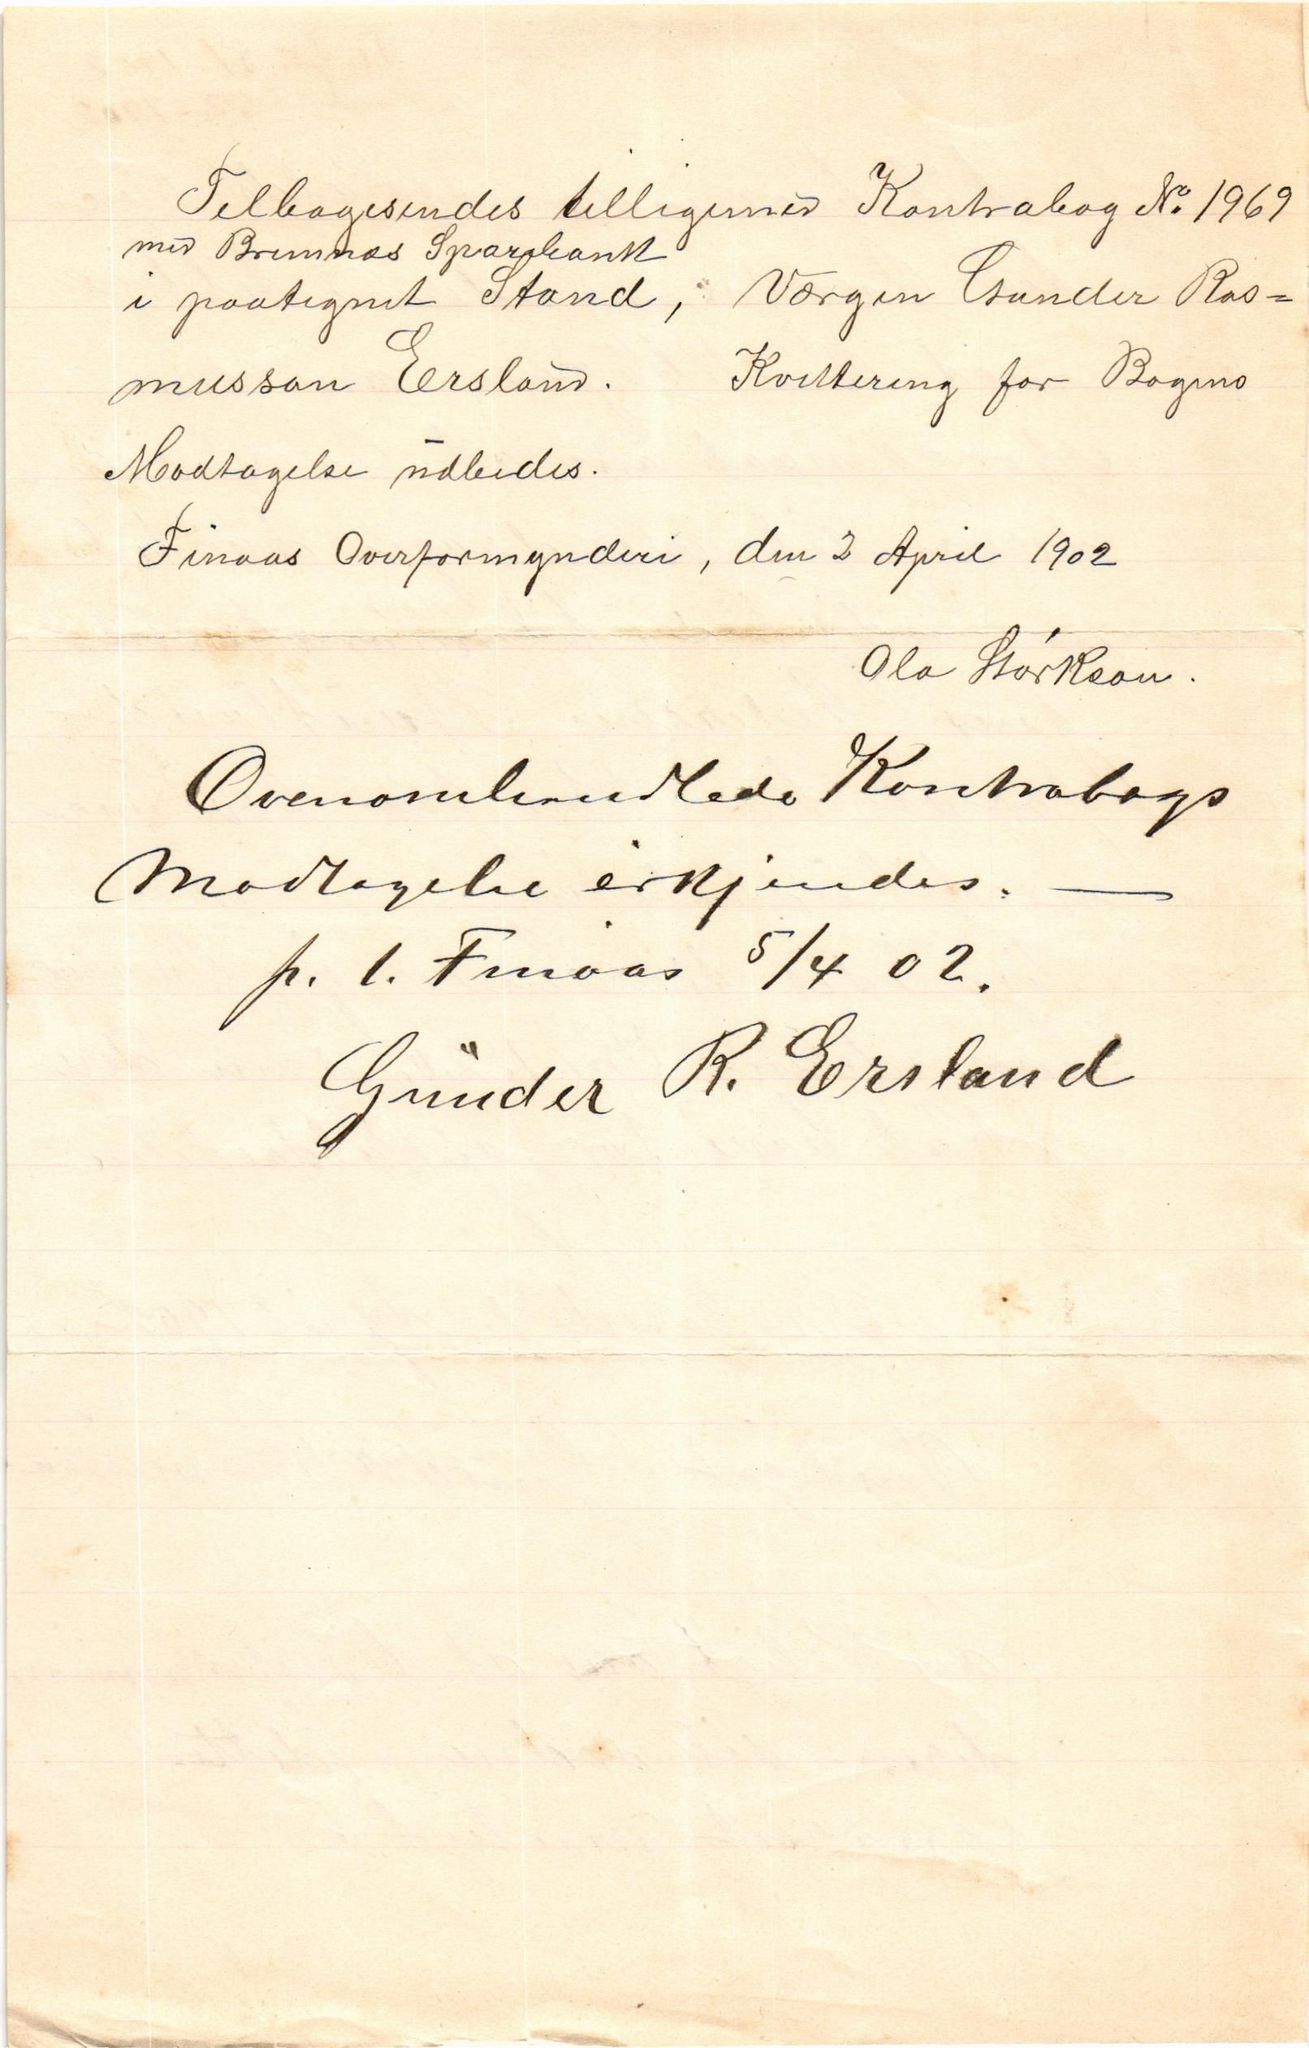 Tilbagesendes tilligemed Kontrabog No. 1969
med Bremnæs Sparebank
i paategnet Stand, Værgen Gunder Ras=
musson Ersland. Kvittering for Bogens
Modtagelse udbedes.
Finaas Overformynderi, den 2 April 1902
Ola Størkson.
Ovenomhandlede Kontrabogs
Modtagelse erkjendes. —
p. t. Finaas 5/4 02.
Gunder R. Ersland